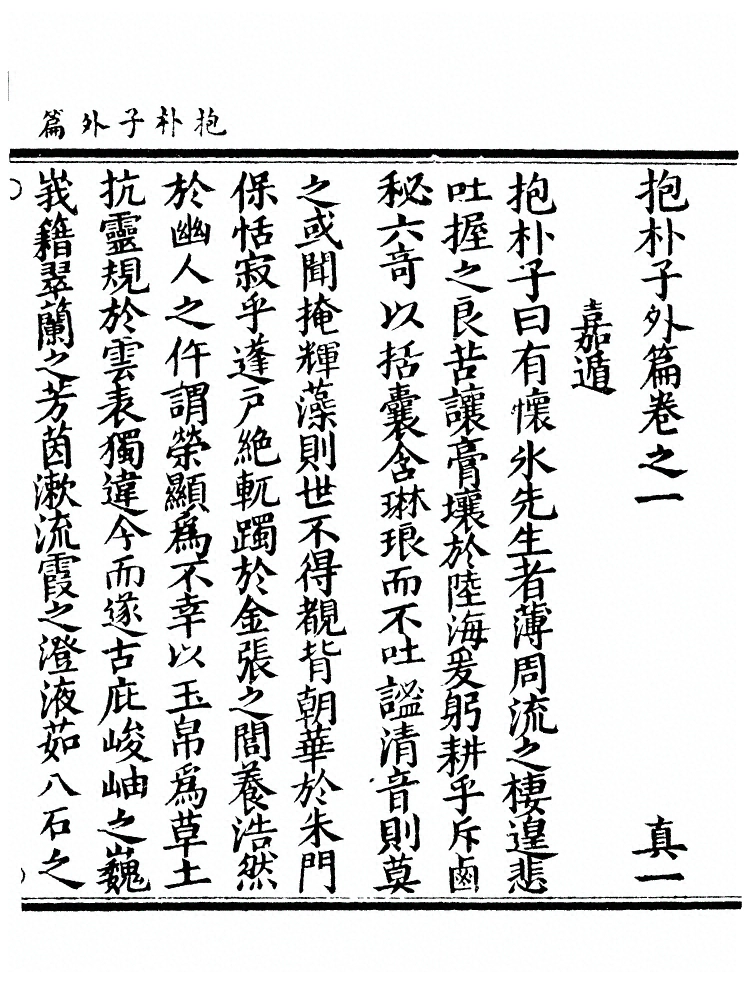 抱朴子外篇
抱朴子外篇卷之一 真一
嘉遁
抱朴子曰有懷氷先生者薄周流之棲遑悲
吐握之良苦讓膏壤於陸海爰躬耕乎斥鹵
秘六竒以括囊含琳琅而不吐謐清音則莫
之或聞掩輝藻則世不得覩背朝華於朱門
保恬寂乎蓬戶絶軏躅於金張之閭養浩然
於幽人之仵謂榮顯爲不幸以玉帛爲草土
抗靈規於雲表獨違今而遂古庇峻岫之巍
峩籍翠蘭之芳茵漱流霞之澄液茹八石之